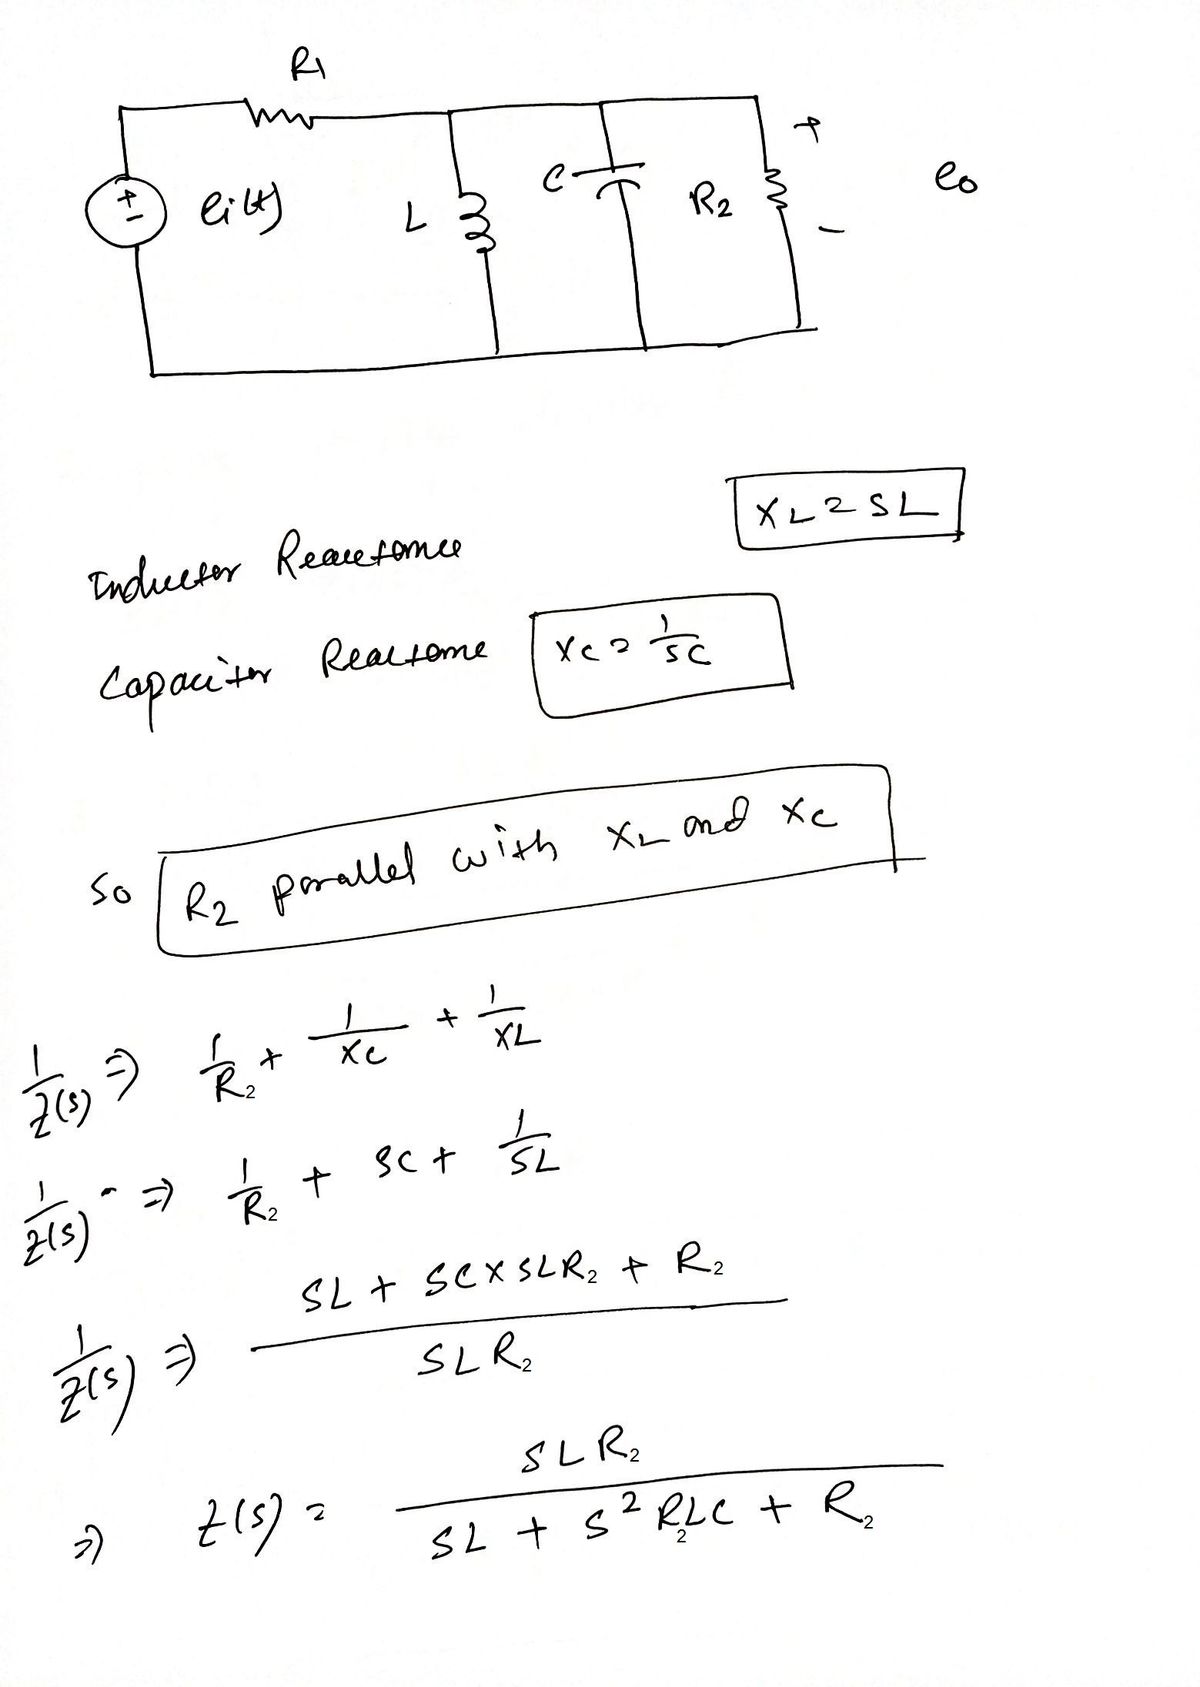 R1
+
-
ei(t)
L
C
R2
+
-
eo
XL = SL
Inductor Reactance
Capacitor Reactance
Xc = 1/SC
So R2 parallel with XL and Xc
1/Z(s) ⇒ 1/R2 + 1/XC + 1/XL
1/Z(s) ⇒ 1/R2 + SC + 1/SL
1/Z(s) ⇒ (SL + SC X SLR2 + R2)/(SLR2)
⇒ Z(s) = (SLR2)/(SL + S²R2LC + R2)